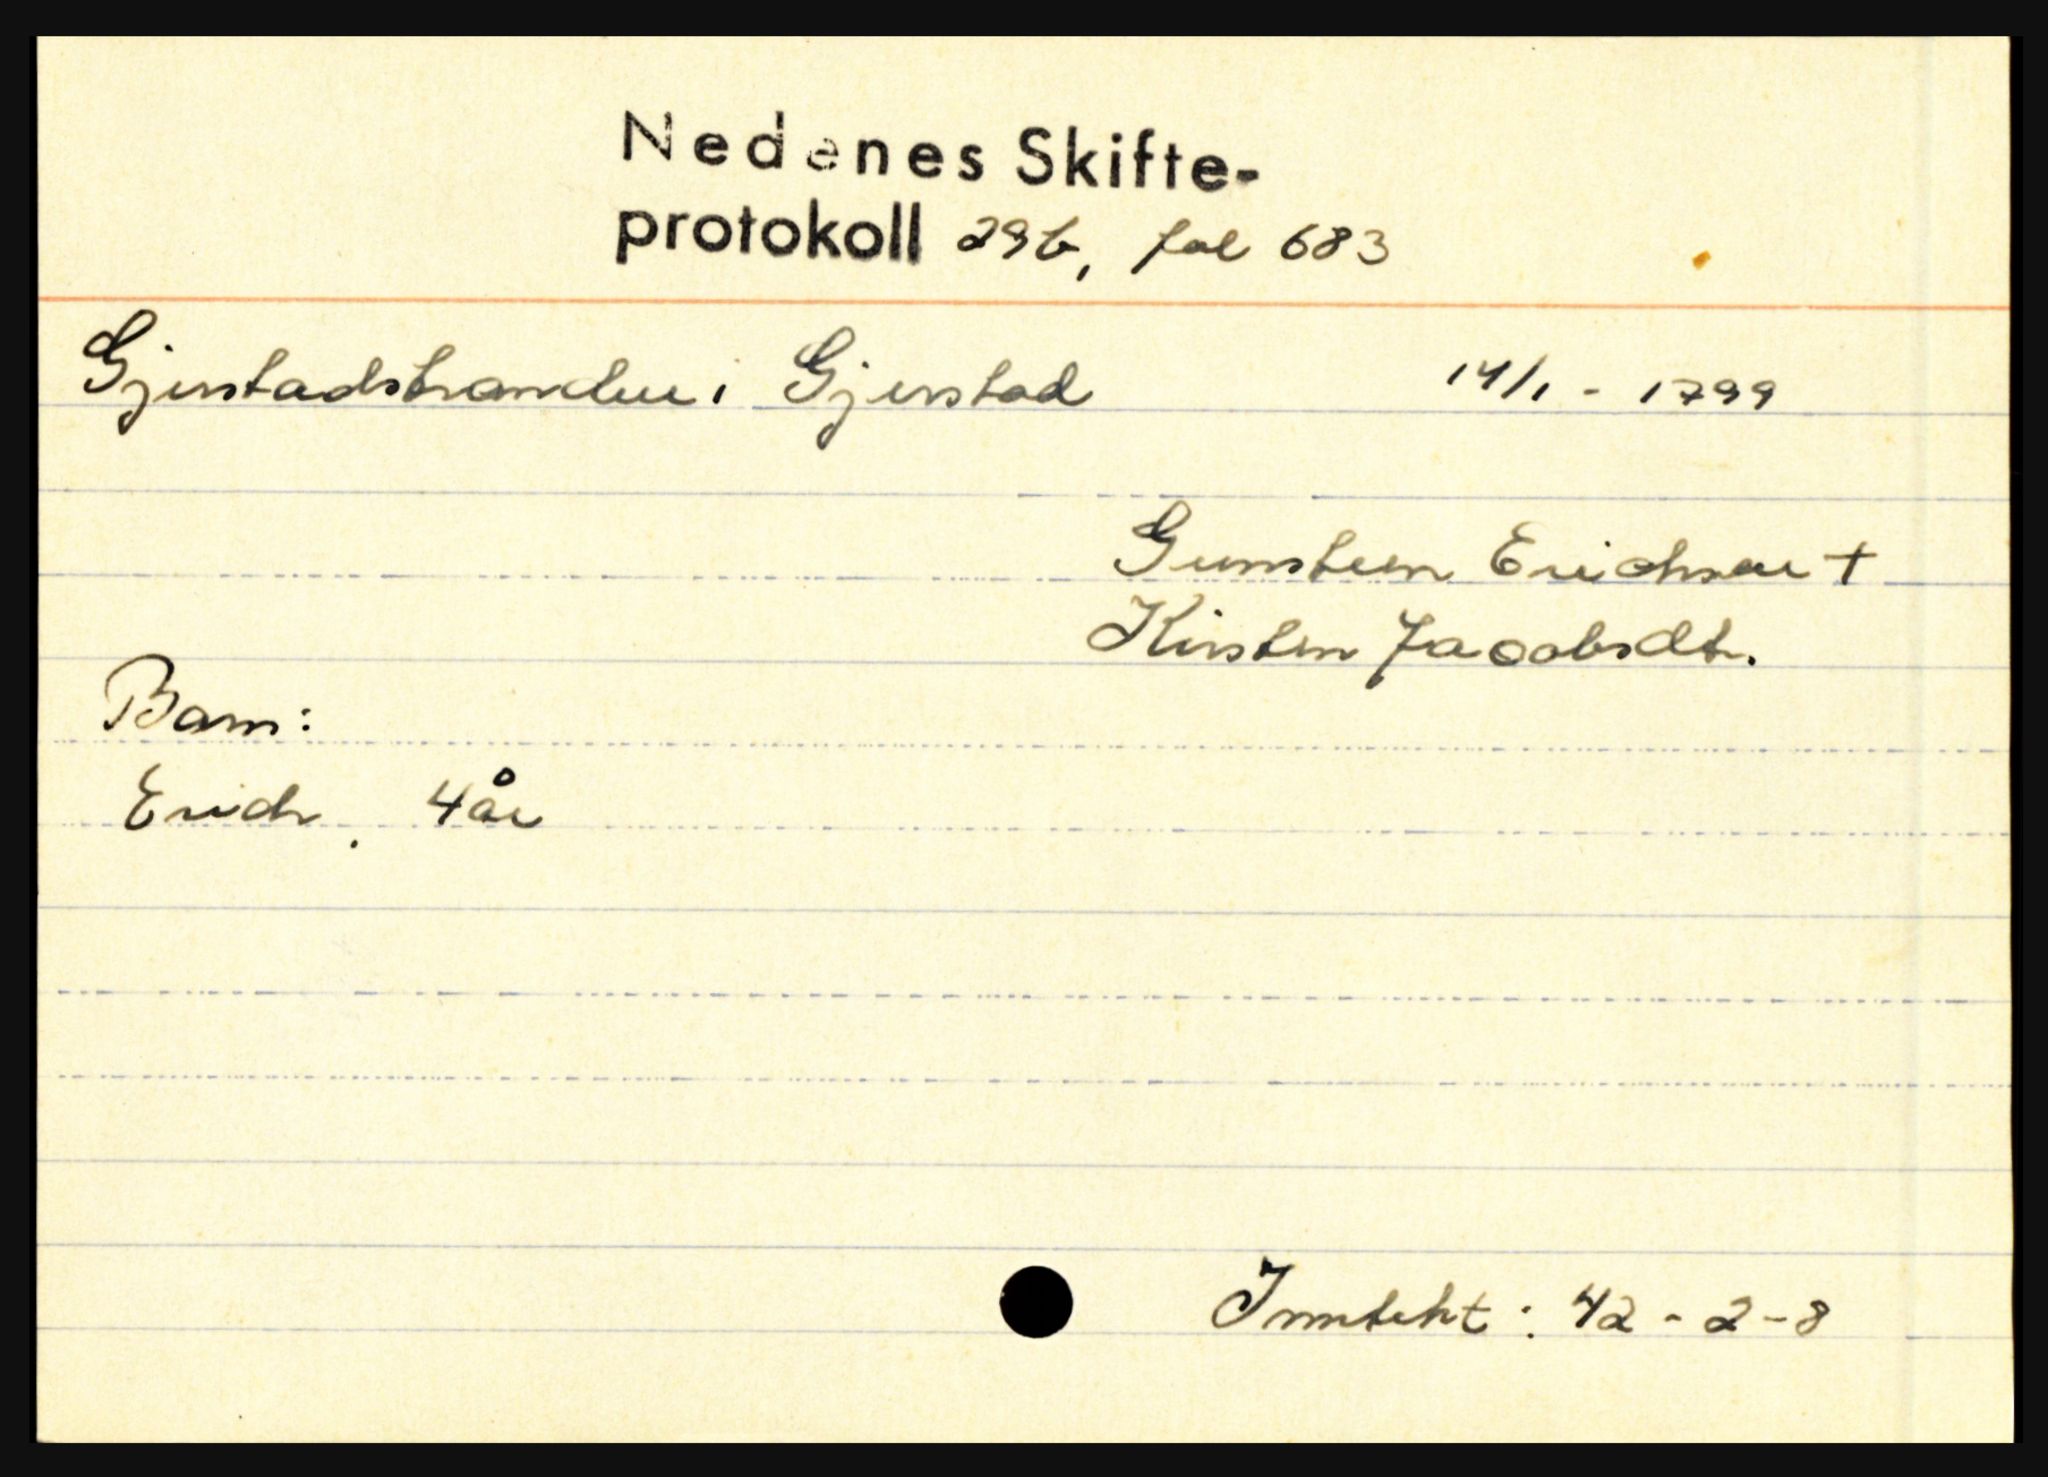 Nedenes Skifte-
protokoll 29b, fol 683
Gjerstadstranden i Gjerstad 14/1 - 1799
Gunsten Erichsen +
Kirsten Jacobsdt.
Barn:
Erich. 4 år
Inntekt: 42 - 2 - 8